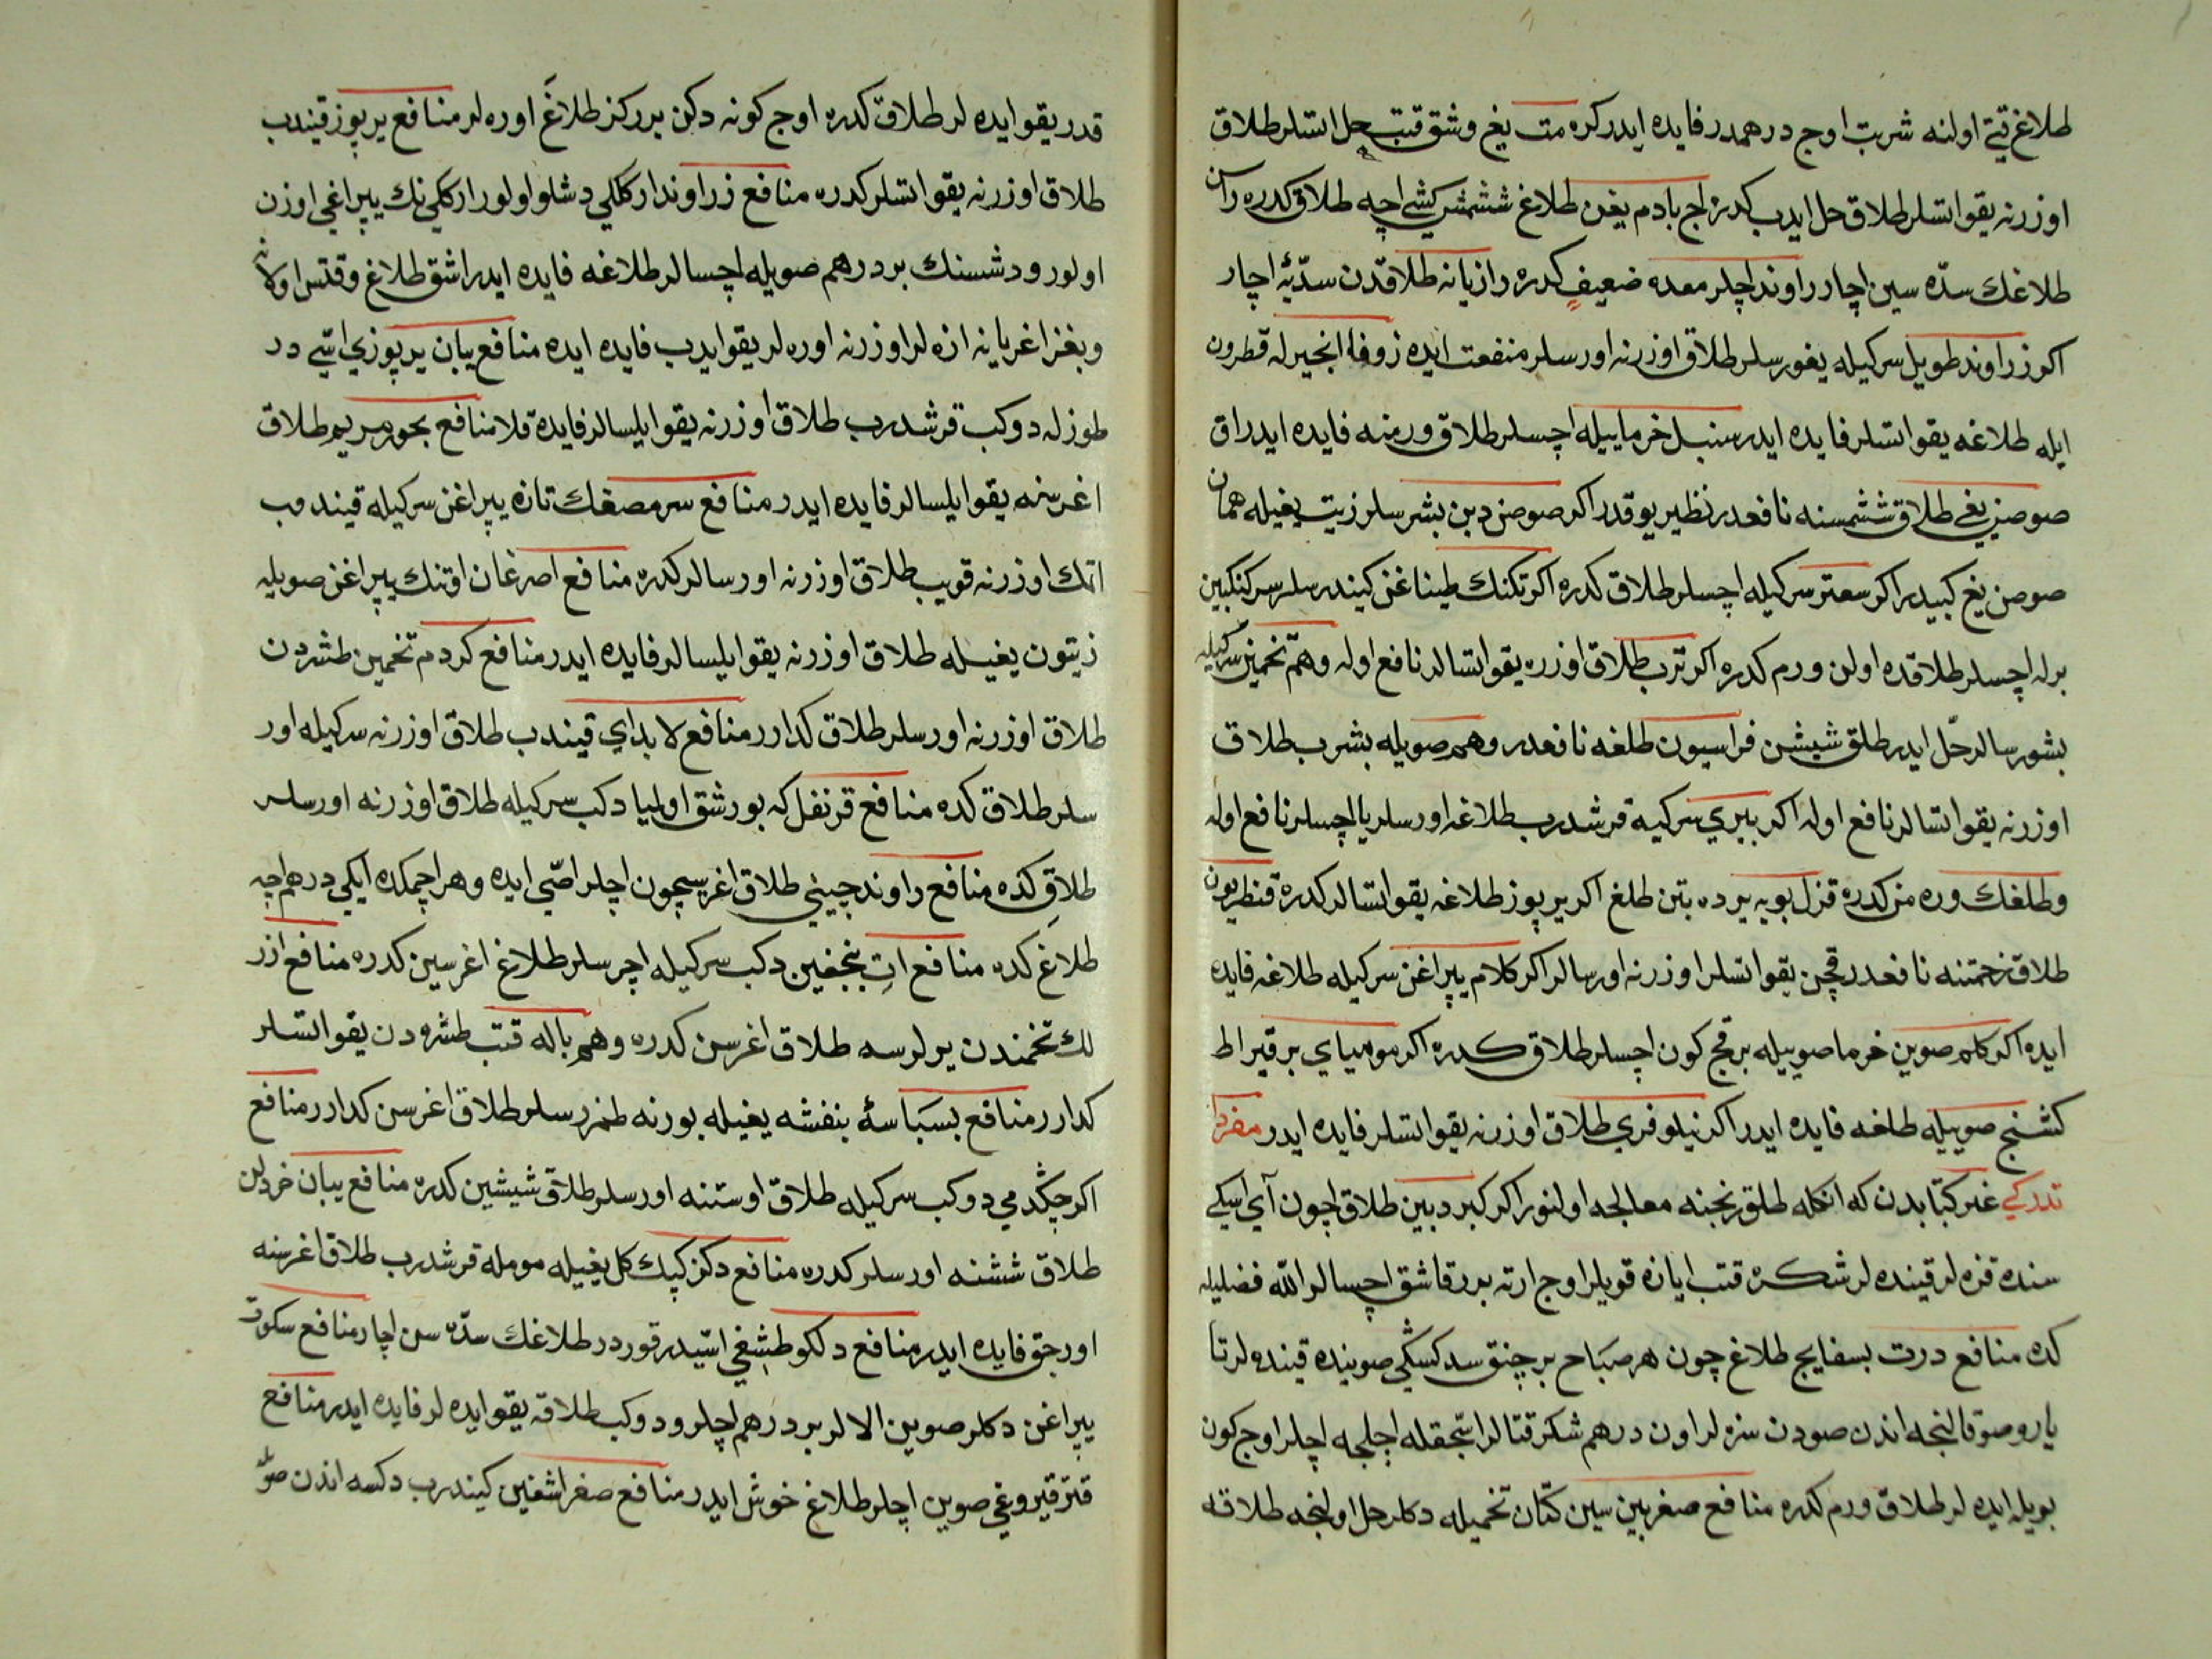 طلاغ قتے اولنه شربت اوچ درهمدر فایده ایدر کره مت یغ وشق قتب حل اتسلر طلاق
اوزرنه یقو اتسلر طلاق حل ایدب کدره اجی بادم یغن طلاغ ششمش کشی اچه طلاق کدره
طلاغك سدّه سین اچار راوند اچلر معده ضعیف کدره رازیانه طلاقدن سدّیٔه اچار
اکر زراوند طویل سرکیله یغورسلر طلاق اوزرنه اورسلر منفعت ایده زوفا انجیرله قطرون
ایله طلاغه یقو اتسلر فایده ایدر سنبل خرماییله اچسلر طلاق ورمنه فایده ایدر اق
صوصن یغی طلاق ششمسنه نافعدر نظیر یوقدر اکر صوصن دبن بشرسلر زیت یغیله همان
صوصن یغ کبیدر اکر سعتر سرکیله اچسلر طلاق کدره اکر تکنك طیناغن کیندرسلر سرکنکبین
برله اچسلر طلاقده اولن ورم کدره اکر ترب طلاق اوزره یقو اتسالر نافع اوله وهم تخمین سرکیله
بشورسالر حلّ ایدر طلق شیشن فراسیون طلغه نافعدر وهم صویله بشرب طلاق
اوزرنه یقو اتسالر نافع اوله اکر بیری سرکیه قرشدرب طلاغه اورسلر یا اچسلر نافع اوله
وطلغك وره من کدره قزل بویه یرده بتن طلغ اکر یرپوز طلاغه یقو اتسالر کدره قنطریون
طلاق زحمتنه نافعدر قچن یقو اتسلر اوزرنه اورسالر اکر کلام یپراغن سرکیله طلاغه فایده
ایده اکر کلم صوین خرما صوییله برقچ کون اچسلر طلاق کدره اکر مومیای بر قیراط
کشنج صوییله طلغه فایده ایدر اکر نیلوفری طلاق اوزرنه یقو اتسلر فایده ایدر مفردا
تدرکی غیر کتابدن که انکله طلق رنجنه معالجه اولنور اکر کبر دبین طلاق اچون آی اسکی
سنده قزه لر قینده لر شکره قتب ایازه قویلر اوچ ارته برر قاشق اچسالر الله فضلیله
کده منافع درت بسفایج طلاغ چون هر صباح بر چنق سد کسکی صوینده قینده لر تا
یارو صو قالنجه اندن صودن سزه لر اون درهم شکر قتالر اسّجقله اچلجه اچلر اوچ کون
بویله ایده لر طلاق ورم کدره منافع صغر بین سین کتّان تخمیله دکلر حل اولنجه طلاقه
قدر یقو ایده لر طلاق کدره اوچ کونه دکن برر کز طلاغَ اوره لر منافع یرپوز قیندب
طلاق اوزرنه یقو اتسلر کدره منافع زراوند ارکللی دشلو اولور ارکلی نك یپراغی اوزن
اولور ودشسنك بر درهم صویله اچسالر طلاغه فایده ایدر اشق طلاغ وقتس اولا
وبغز اغریانه ازه لر اوزرنه اوره لر یقو ایدب فایده ایده منافع یبان یرپوزی ایتّی در
طوزله دوکب قرشدرب طلاق اوزرنه یقو ایلسالر فایده قلا منافع بخور مریم طلاق
اغرسنه یقو ایلسالر فایده ایدر منافع سرمصغك تازه یپراغن سرکیله قیندب
اتك اوزرنه قویب طلاق اوزرنه اورسالر کدره منافع اصرغان اوتنك یپراغن صویله
زیتون یغیله طلاق اوزرنه یقو ایلسالر فایده ایدر منافع کردم تخمین طشردن
طلاق اوزرنه اورسلر طلاق کدارر منافع لابدای قیندب طلاق اوزرنه سرکیله اور
سلر طلاق کده منافع قرنفل که بورشق اولمیا دکب سرکیله طلاق اوزرنه اورسلر
طلاق کده منافع راوند چینی طلاق اغریسیچون اچلر اصّی ایده وهر اچمکده ایکی درهم اچه
طلاغ کده منافع ات بنجغین دکب سرکیله اچرسلر طلاغ اغرسین کدره منافع ازر
لك تخمندن یرلرسه طلاق اغرسن کدره وهم باله قتب طشره دن یقو اتسلر
کدارر منافع بسباسهٔ بنفشه یغیله بورنه طمزرسلر طلاق اغرسن کدارر منافع
اکر چکدمی دوکب سرکیله طلاق اوستنه اورسلر طلاق شیشین کدره منافع یبان خردلن
طلاق ششنه اورسلر کدره منافع دکز کپك کل یغیله مومله قرشدرب طلاق اغرسنه
اورجق فایده ایدر منافع دلکو طشغی اسّیدر قوردر طلاغك سدّه سن اچار منافع سکوت
یپراغن دکلر صوین الالر بر درهم اچلر ودوکب طلاقه یقو ایده لر فایده ایدر منافع
قتر قیروغی صوین اچلر طلاغ خوش ایدر منافع صغر اشغین کیندرب دکسه اندن